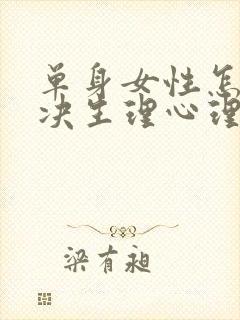 单身女性怎
决生理心理
梁有昶